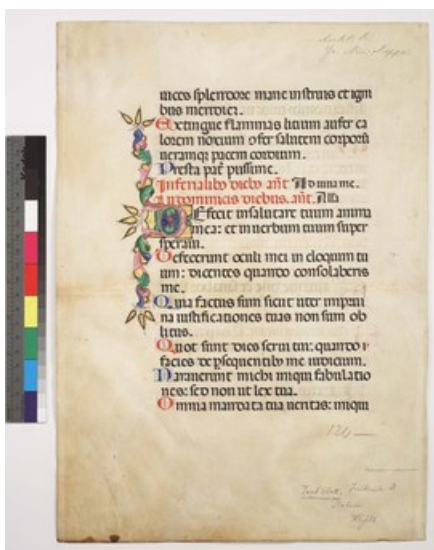 uices splendore mane instruis et igni
bus meridiez.
Extingue flammas litium aufer ca
lorem noxium ɔfer salutem corporũ
ueramqʒ pacem cordium.
Presta pat̃ piissime.
Infernalibʒ diebʒ añt
In dominicis diebus. añt. Alla
Efecit in salutare tuum anima
mea: et in uerbum tuum super
speraui.
Defecerunt oculi mei in eloquium tu
um: dicentes quando consolaberis
me.
Quia factus sum sicut uter in prui
na iustificationes tuas non sum ob
litus.
Quot sunt dies serui tui: quando
facies de ꝑsequentibʒ me iudicium.
Narauerunt michi iniqui fabulatio
nes: sed non ut lex tua.
Omnia mandata tua ueritas: iniqui